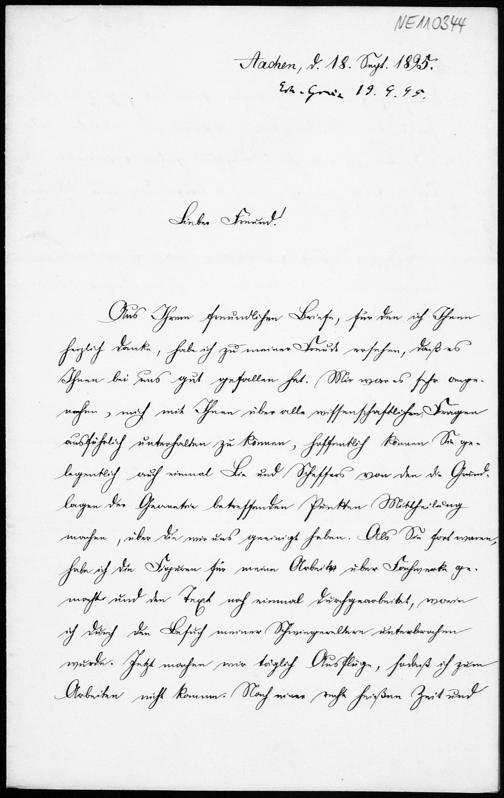 NE110344
Aachen, d. 18. Sept. 1895.
19. 9. 95.
Lieber Freund!
Aus Ihrem freundlichen Briefe, für den ich Ihnen
herzlich danke, habe ich zu meiner Freude ersehen, daß es
Ihnen bei uns gut gefallen hat. Mir war es sehr ange-
nehm, mich mit Ihnen über alle wissenschaftlichen Fragen
ausführlich unterhalten zu können, hoffentlich können Sie ge-
legentlich auch einmal Lie und Scheffers von den die Grund-
lagen der Geometrie betreffenden Punkten Mittheilung
machen, über die wir uns geeinigt haben. Als Sie fort waren,
habe ich die Figuren für meine Arbeit über Fachwerke ge-
macht und den Text noch einmal durchgearbeitet, worin
ich durch den Besuch meiner Schwiegereltern unterbrochen
wurde. Jetzt machen wir täglich Ausflüge, sodaß ich zum
Arbeiten nicht komme. Nach einer recht heißen Zeit und